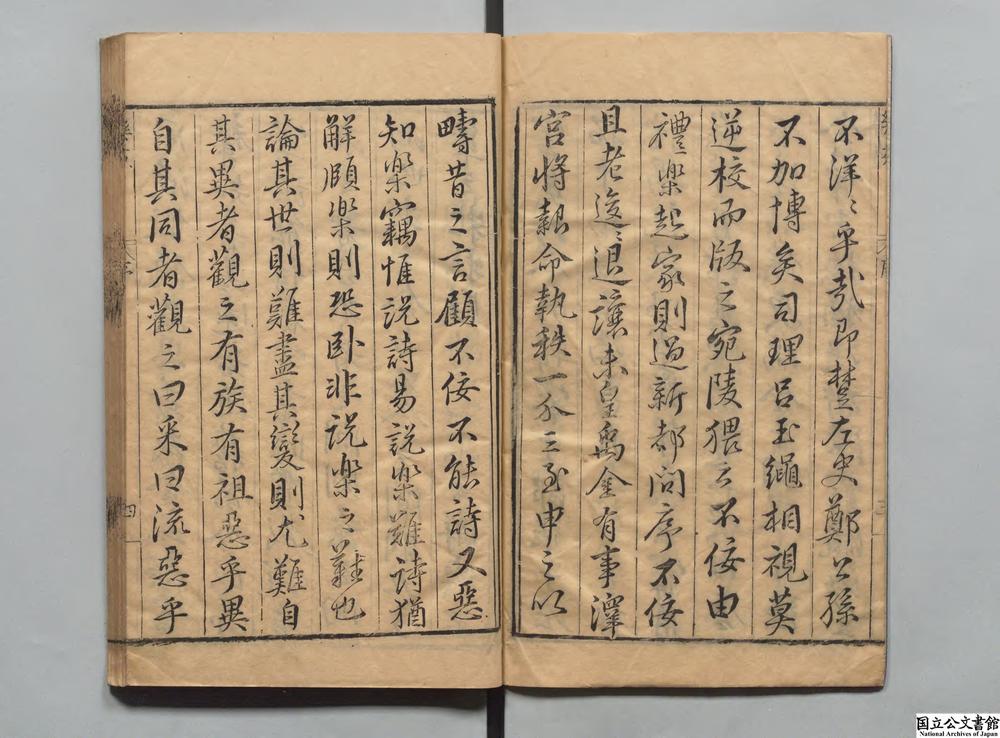 不洋〻乎哉即楚左史鄭公孫
不加博矣司理呂玉繩相視莫
逆校而版之宛陵猥云不佞由
禮樂起家則過新都問序不佞
且老逡〻退讓未皇禹金有事澤
宮將報命執秩一介三至申之以
疇昔之言顧不佞不能詩又惡
知樂竊惟說詩易說樂難詩猶
解頤樂則恐臥非說樂之難也
論其世則難盡其變則尤難自
其異者觀之有族有祖惡乎異
自其同者觀之曰采曰流惡乎
四
国立公文書館
National Archives of Japan